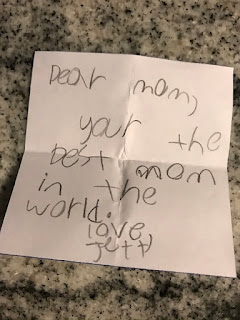 Dear mom,
your the
best mom
in the
world.
love,
Jett